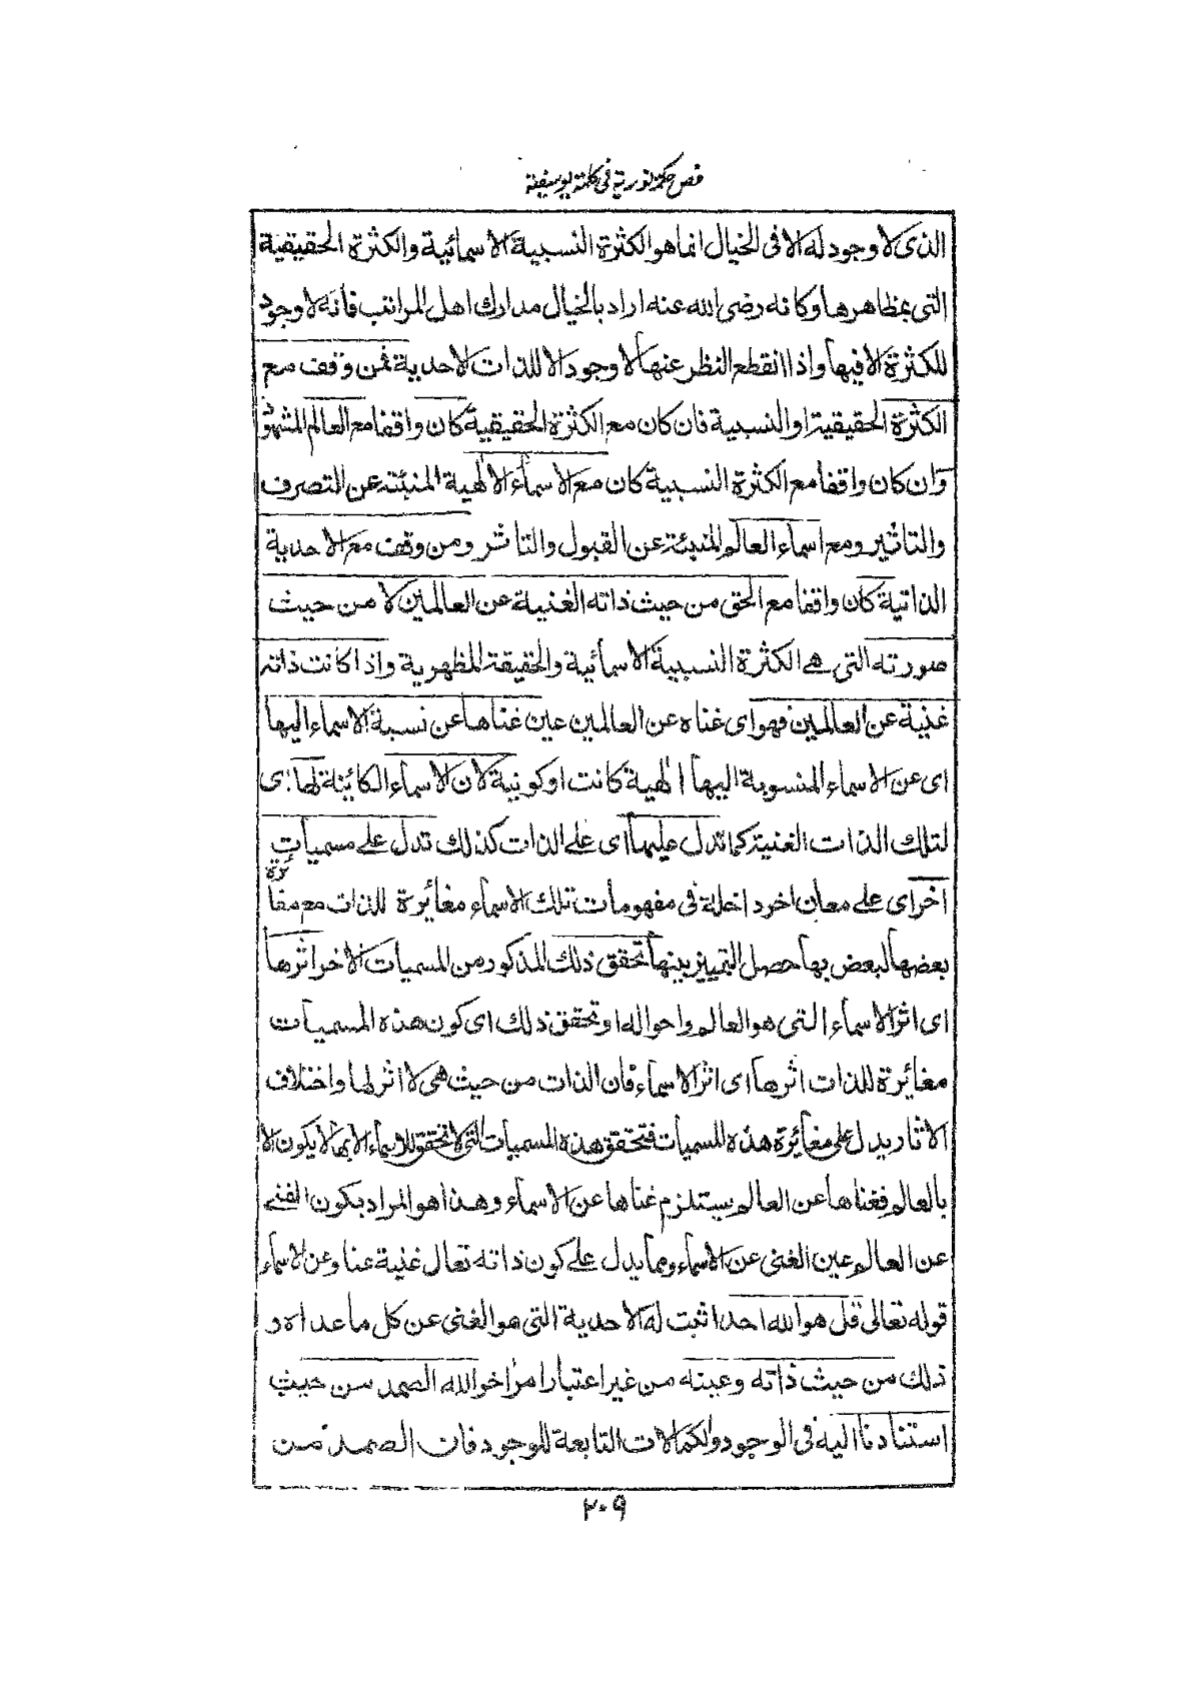 فص حكمة نورية فى كلمة يوسفية
الذى لا وجود له الا فى الخيال انما هو الكثرة النسبية الاسمائية والكثرة الحقيقية
التى بمظاهرها وكانه رضى الله عنه اراد بالخيال مدارك اهل المراتب فانه لا وجود
للكثرة الا فيها واذا انقطع النظر عنها لا وجود الا للذات الاحدية فمن وقف مع
الكثرة الحقيقية او النسبية فان كان مع الكثرة الحقيقية كان واقفا مع العالم المشهود
وان كان واقفا مع الكثرة النسبية كان مع الاسماء الالهية المنبئة عن التصرف
والتاثير ومع اسماء العالم المنبئة عن القبول والتاثر ومن وقف مع الاحدية
الذاتية كان واقفا مع الحق من حيث ذاته الغنية عن العالمين لا من حيث
صورته التى هى الكثرة النسبية الاسمائية والحقيقة المظهرية واذا كانت ذاته
غنية عن العالمين فهو اى غناه عن العالمين عين غناها عن نسبة الاسماء اليها
اى عن الاسماء المنسوبة اليها الهية كانت او كونية لان الاسماء الكائنة لها اى
لتلك الذات الغنية كما تدل عليها اى على الذات كذلك تدل على مسميات
اخر اى على معان اخر داخلة فى مفهومات تلك الاسماء مغائرة للذات مع مغائرة
بعضها لبعض بها حصل التمييز بينها تحقق ذلك المذكور من المسميات الاخر اثرها
اى اثر الاسماء التى هو العالم واحواله او تحقق ذلك اى كون هذه المسميات
مغائرة للذات اثرها اى اثر الاسماء فان الذات من حيث هى لا اثر لها واختلاف
الاثار يدل على مغائرة هذه المسميات فتحقق هذه المسميات التى لا تحقق للاسماء الا بها لا يكون الا
بالعالم فغناها عن العالم يستلزم غناها عن الاسماء وهذا هو المراد بكون الغنى
عن العالم عين الغنى عن الاسماء ومما يدل على كون ذاته تعالى غنية عنا وعن الاسماء
قوله تعالى قل هو الله احد اثبت له الاحدية التى هو الغنى عن كل ما عداه و
ذلك من حيث ذاته وعينه من غير اعتبار امر اخر الله الصمد من حيث
استنادنا اليه فى الوجود والكمالات التابعة للوجود فان الصمد من
٢٠٩